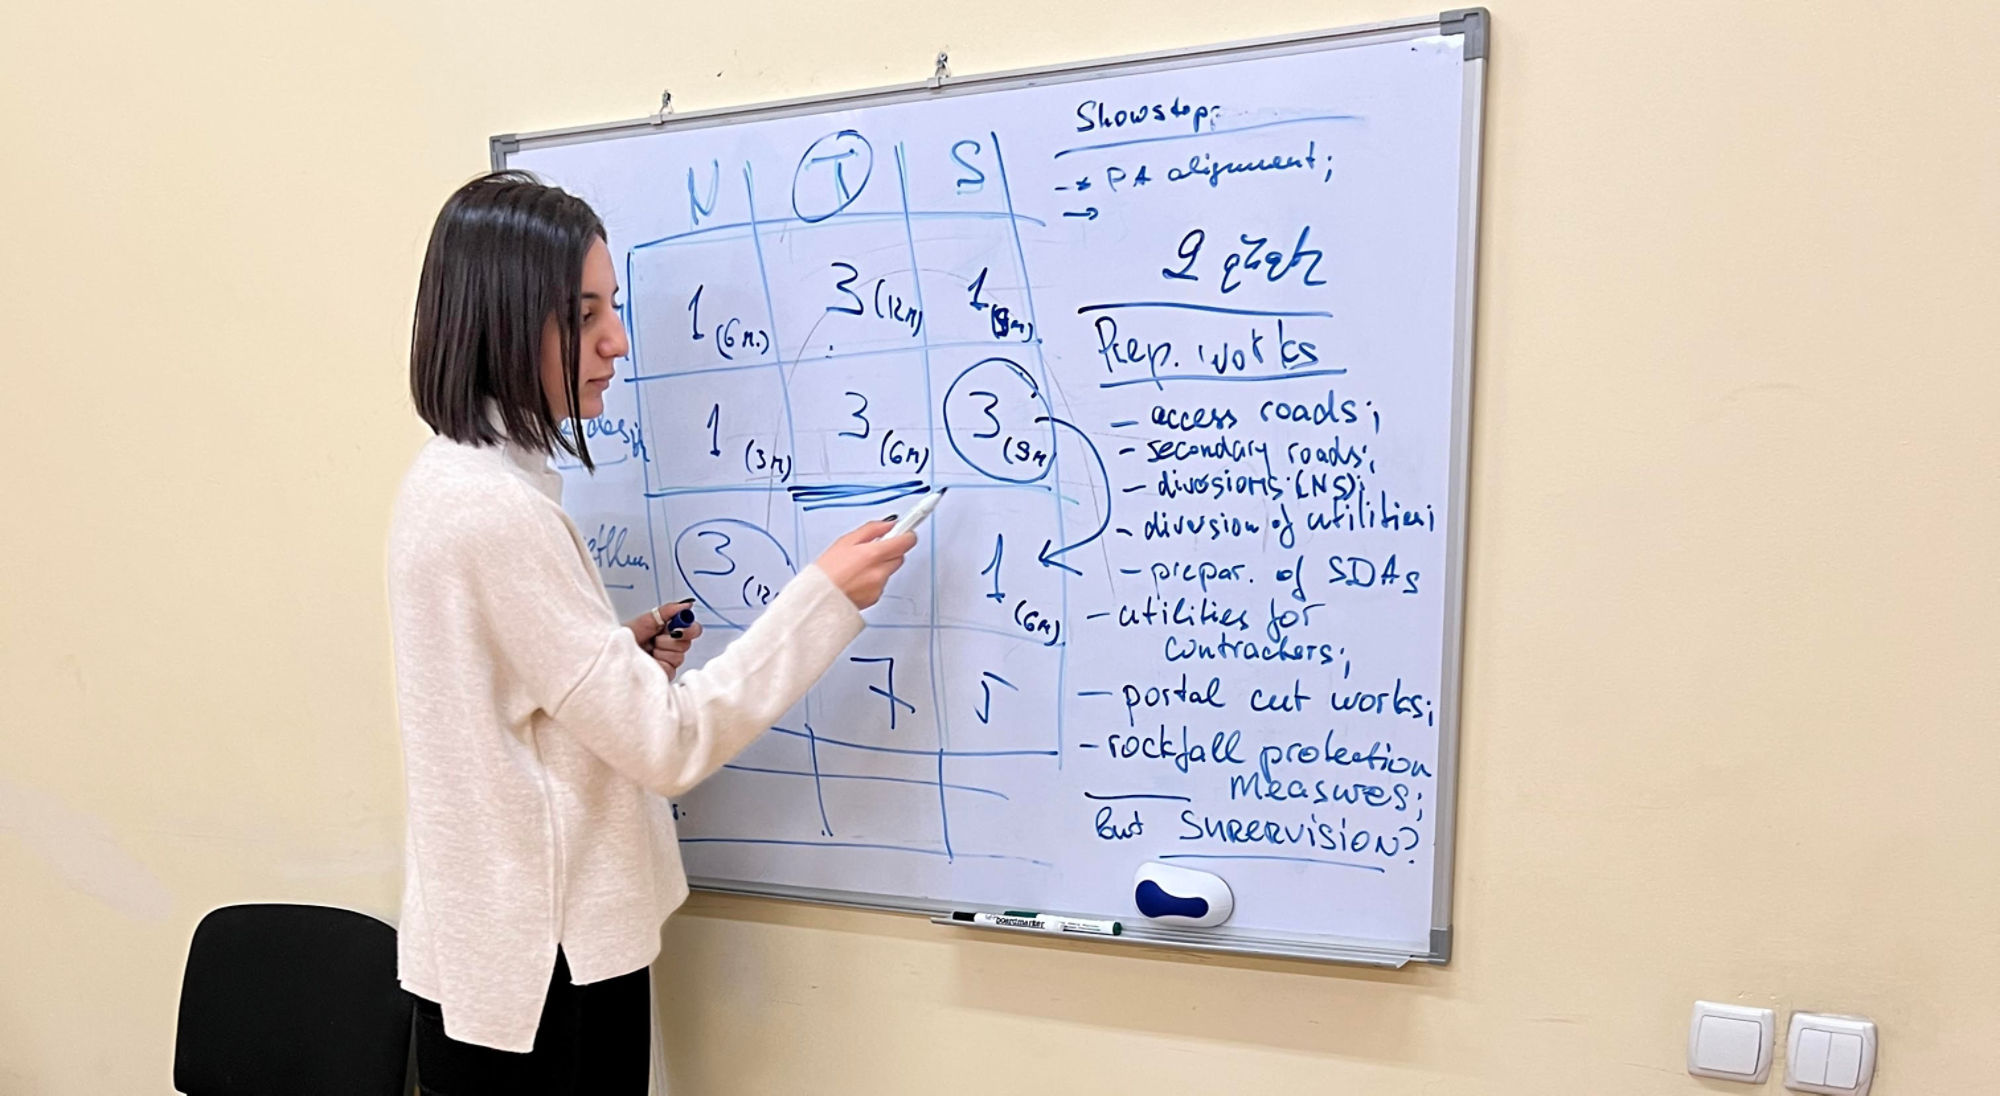 N T S
1 (6м.) 3 (12м) 1 (9м)
1 (3м) 3 (6м) 3 (9м)
3 (12 1 (6м)
7 5
Showstop
→ PA alignment;
→
Prep. works
- access roads;
- secondary roads;
- diversions (NS);
- diversion of utilities;
- prepar. of SDAs
- utilities for
contractors;
- portal cut works;
- rockfall protection
measures;
but SUPERVISION?
boardmarker